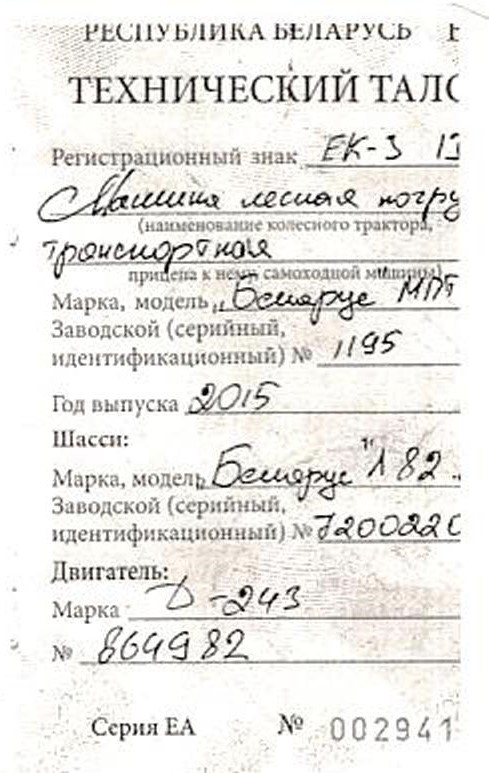 РЕСПУБЛИКА БЕЛАРУСЬ
ТЕХНИЧЕСКИЙ ТАЛО
Регистрационный знак ЕК-3
Машина лесная погру
(наименование колесного трактора,
транспортная
прицепа к нему, самоходной машины)
Марка, модель "Беларус" МПТ
Заводской (серийный,
идентификационный) № 1195
Год выпуска 2015
Шасси:
Марка, модель "Беларус" Л 82
Заводской (серийный,
идентификационный) № 7200220
Двигатель:
Марка Д-243
№ 864982
Серия ЕА № 002941